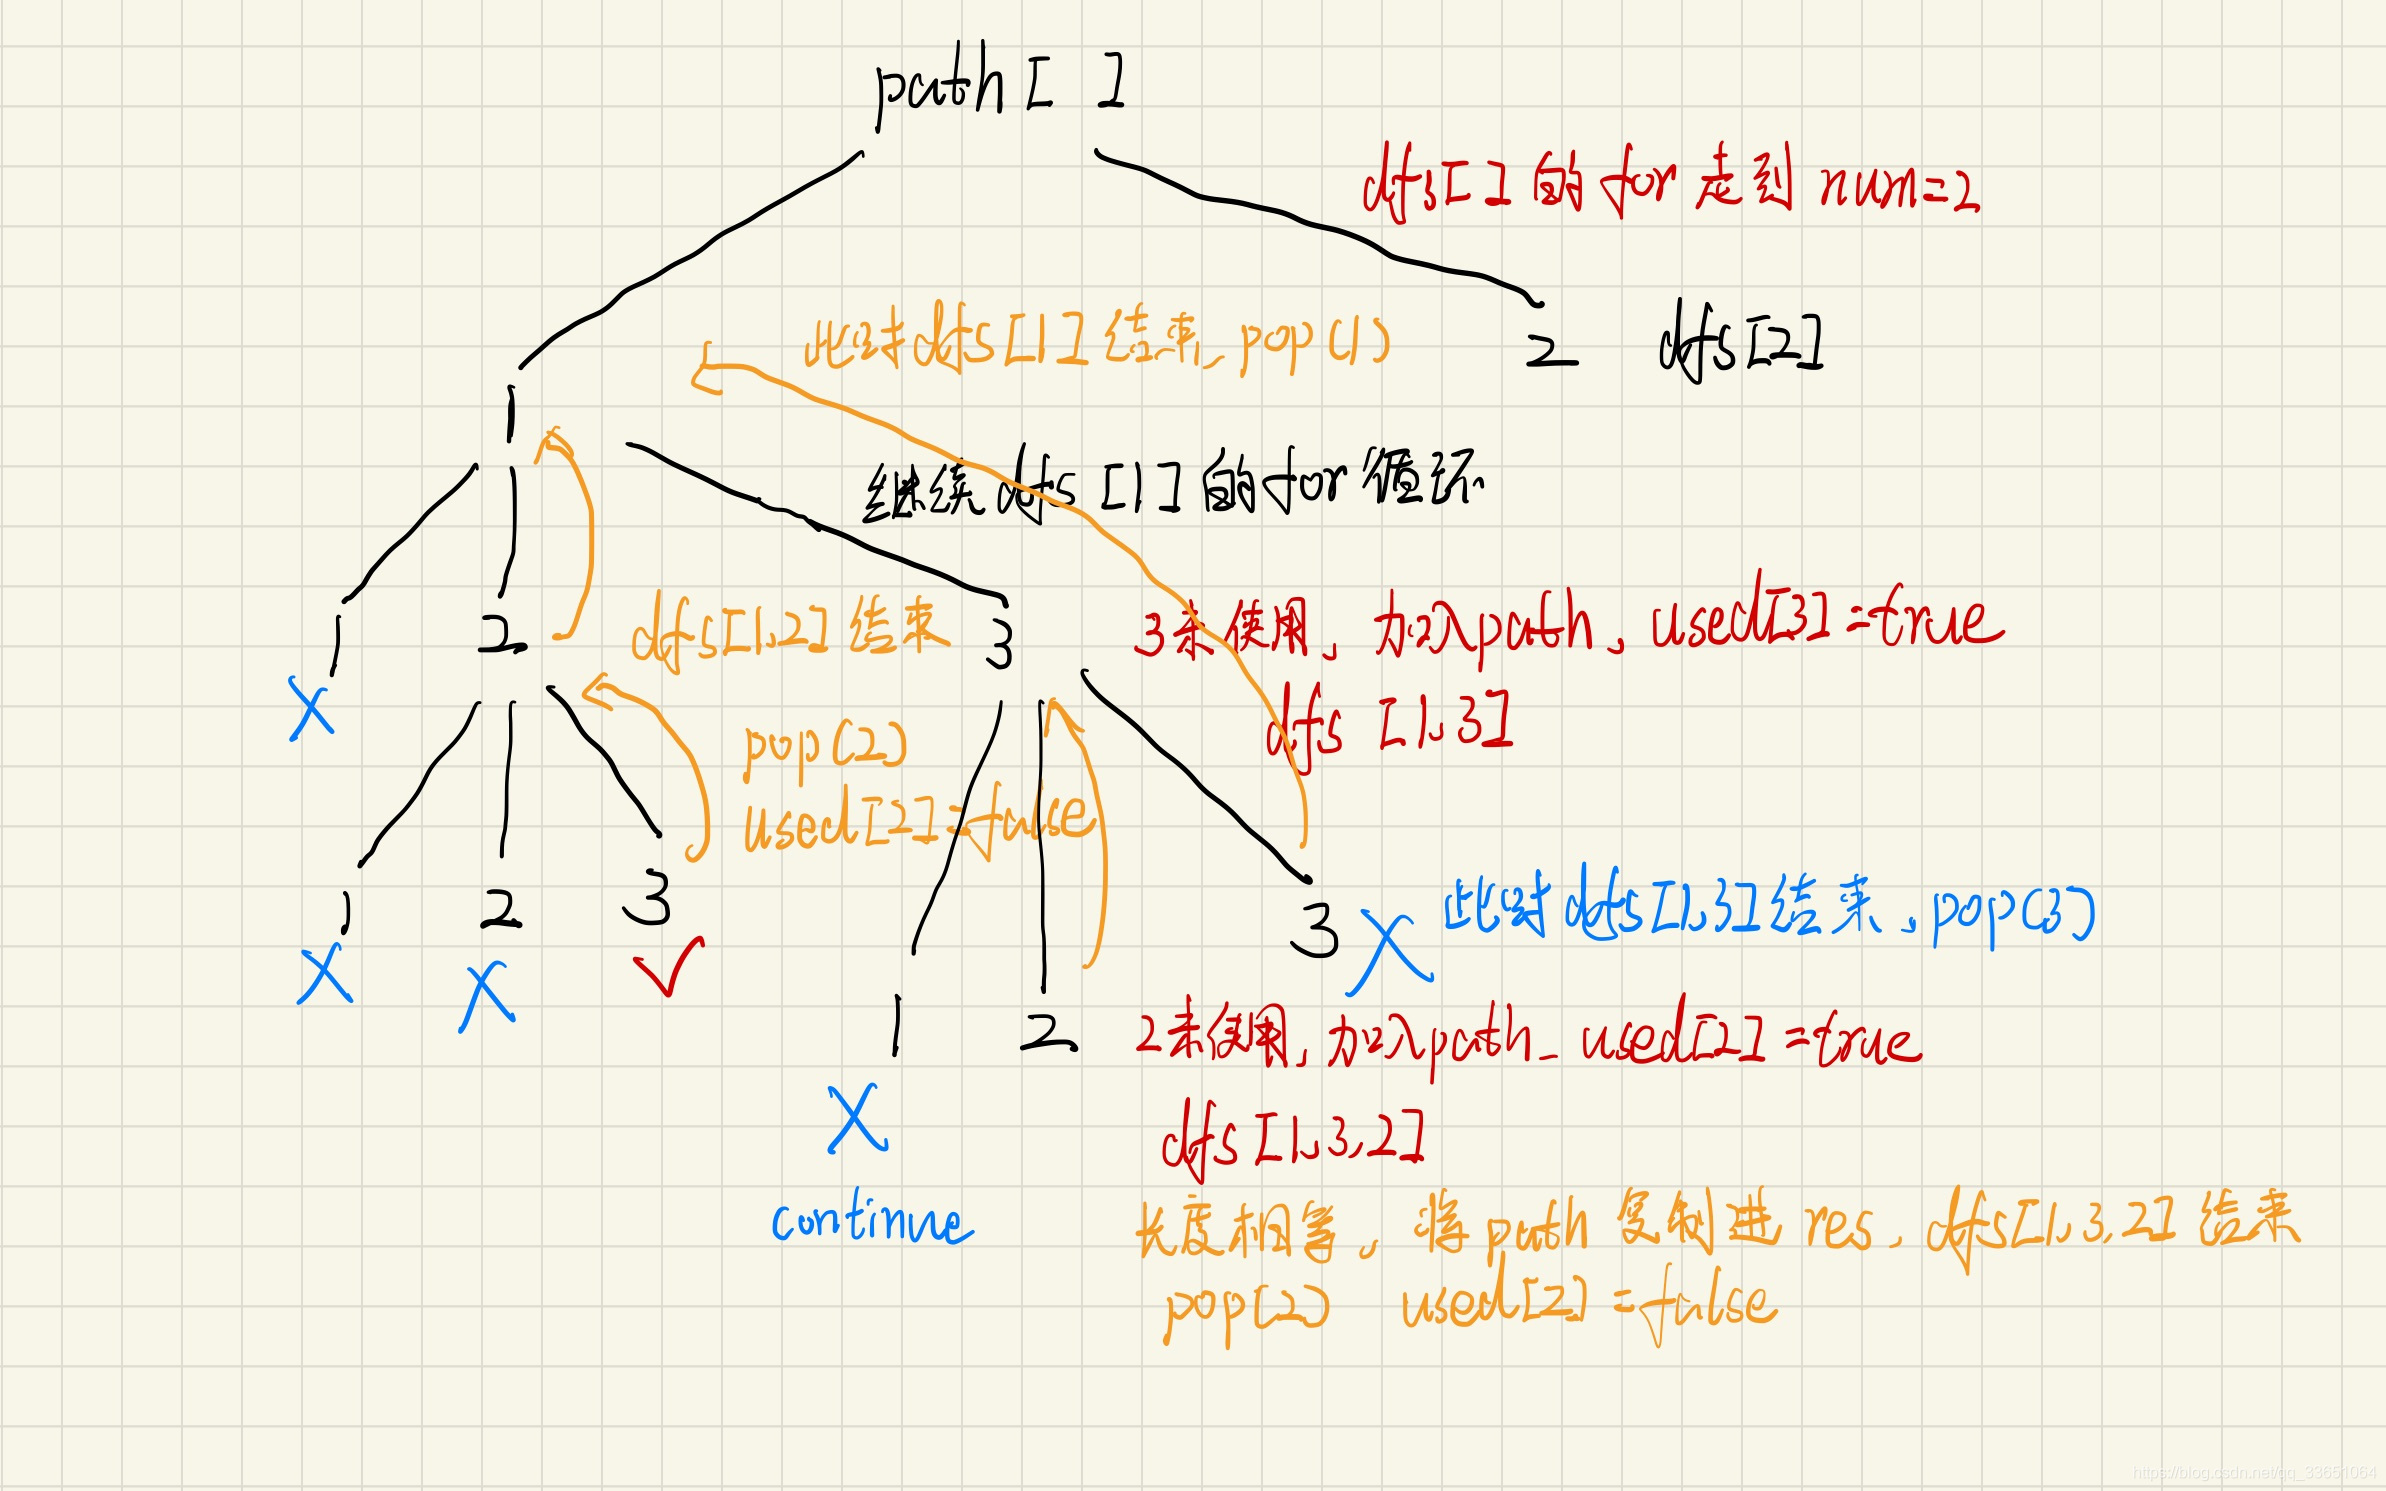 path[ ]
dfs[ ]的for走到num=2
此时dfs[1]结束,pop(1)
2 dfs[2]
1
继续dfs[1]的for循环
1 2
dfs[1,2]结束
3
3未使用,加入path,used[3]=true
dfs[1,3]
X
pop(2)
used[2]=false
1 2 3
X X
3 X
此时dfs[1,3]结束,pop(3)
1 2
2未使用,加入path,used[2]=true
X
dfs[1,3,2]
continue
长度相等,将path复制进res,dfs[1,3,2]结束
pop(2) used[2]=false
https://blog.csdn.net/qq_33651064